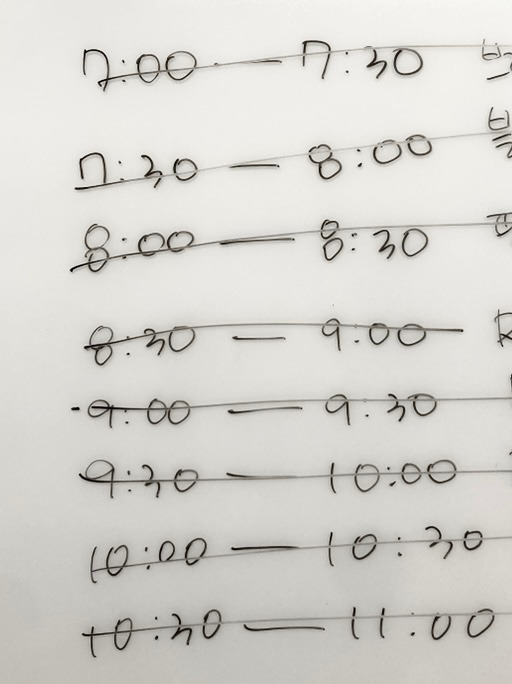 7:00 — 7:30
7:30 — 8:00
8:00 — 8:30
8:30 — 9:00
9:00 — 9:30
9:30 — 10:00
10:00 — 10:30
10:30 — 11:00